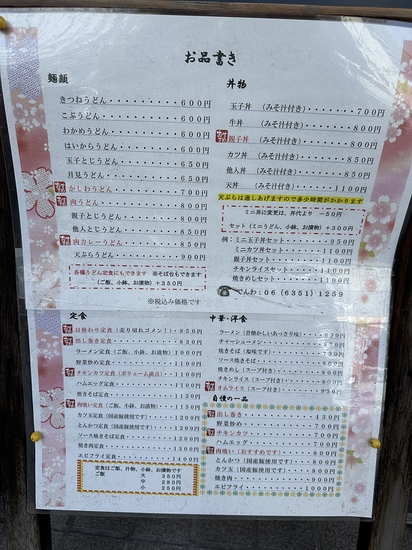 お品書き
麺類
きつねうどん・・・・・・・・・・600円
こぶうどん・・・・・・・・・・・600円
わかめうどん・・・・・・・・・・600円
はいからうどん・・・・・・・・・600円
玉子とじうどん・・・・・・・・・650円
月見うどん・・・・・・・・・・・650円
かしわうどん・・・・・・・・・・700円
肉うどん・・・・・・・・・・・・800円
親子とじうどん・・・・・・・・・800円
他人とじうどん・・・・・・・・・850円
肉カレーうどん・・・・・・・・・850円
天ぷらうどん・・・・・・・・・・900円
各種うどん定食にもできます
(ご飯、小鉢、お漬物) +350円
※税込み価格です
丼物
玉子丼 (みそ汁付き)・・・・・・・700円
牛丼 (みそ汁付き)・・・・・・・・800円
親子丼 (みそ汁付き)・・・・・・・800円
カツ丼 (みそ汁付き)・・・・・・・850円
他人丼 (みそ汁付き)・・・・・・・850円
天丼 (みそ汁付き)・・・・・・・1100円
天ぷらは通しあげますので多少時間がかかります
ミニ丼に変更は、丼代より -50円
セット (ミニうどん、小鉢、お漬物) +300円
例:ミニ玉子丼セット・・・・・・・950円
ミニカツ丼セット・・・・・・1100円
親子丼セット・・・・・・・・1100円
チキンライスセット・・・・・1100円
焼きめしセット・・・・・・・1100円
でんわ:06 (6351) 1259
定食
日替わり定食 (売り切れゴメン!)・・850円
出し巻き定食・・・・・・・・・・830円
ラーメン定食 (ご飯、小鉢、お漬物) 1000円
野菜炒め定食・・・・・・・・・・1100円
チキンカツ定食 (ボリューム満点)・・1100円
ハムエッグ定食・・・・・・・・・1100円
焼きそば定食・・・・・・・・・・1130円
肉吸い定食 (ご飯、小鉢、お漬物)・・1150円
カツ玉定食 (国産豚使用)・・・・・1200円
とんかつ定食 (国産豚使用)・・・・1200円
ソース焼きそば定食・・・・・・・1200円
焼き肉定食・・・・・・・・・・・1300円
エビフライ定食・・・・・・・・・1400円
定食はご飯、汁物、小鉢、お漬物です
ご飯 大 350円
中 280円
小 250円
中華・洋食
ラーメン (昔懐かしいあっさり味)
チャーシューメン
焼きそば (塩味です)
ソース焼きそば
焼きめし (スープ付き)・・・800円
チキンライス (スープ付き)・・・800円
オムライス (スープ付き)・・・950円
自慢の一品
出し巻き・・・・・・・・・・・・430円
野菜炒め・・・・・・・・・・・・700円
チキンカツ・・・・・・・・・・・700円
ハムエッグ・・・・・・・・・・・700円
肉吸い (おすすめです)・・・・・・800円
とんかつ (国産豚使用です)・・・・800円
カツ玉 (国産豚使用です)・・・・・800円
焼き肉・・・・・・・・・・・・・900円
エビフライ・・・・・・・・・・1000円